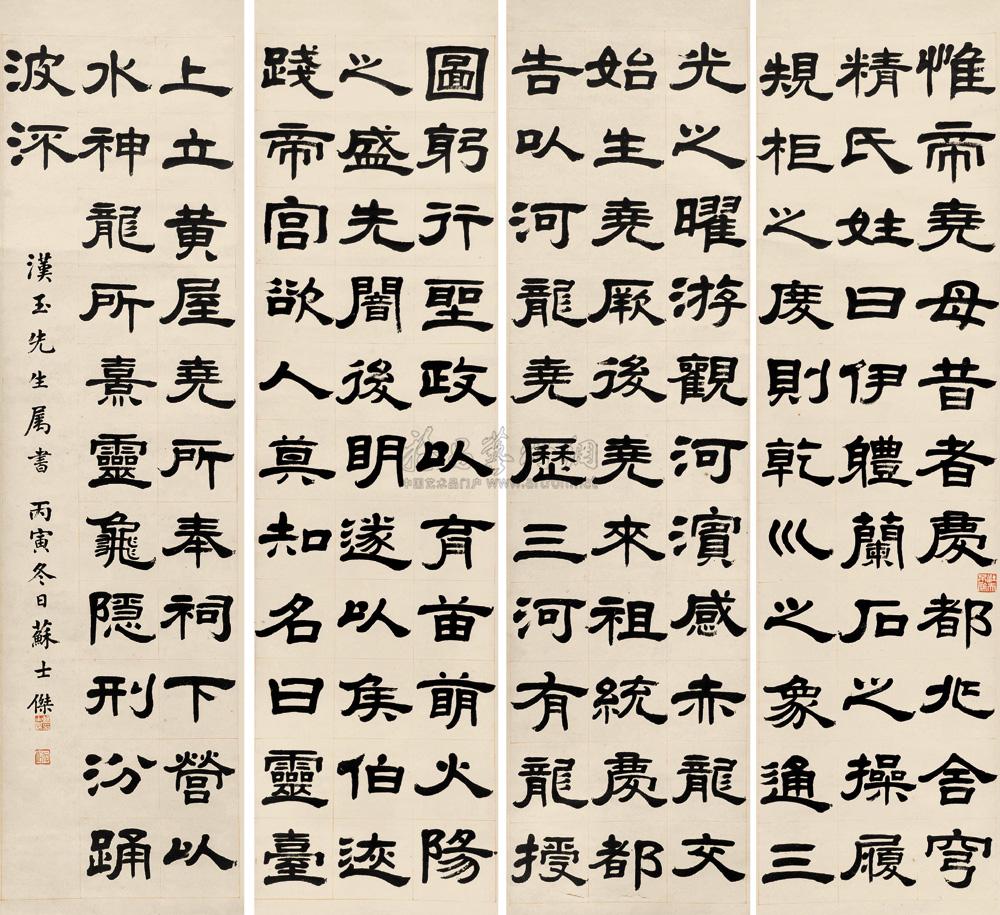 惟帝堯母昔者慶都兆舍穹
精氏姓曰伊體蘭石之操履
規柜之度則乾巛之象通三
光之曜游觀河濱感赤龍交
始生堯厥後堯來祖統慶都
告以河龍堯歷三河有龍授
圖躬行聖政以育苗萌火陽
之盛先闇後明遂以侯伯
踐帝宮欲人莫知名曰靈臺
上立黃屋堯所奉祠下營以
水神龍所熹靈龜隱刑汾踊
波深
漢玉先生属書 丙寅冬日蘇士傑
中国艺术品门户 www.artron.net